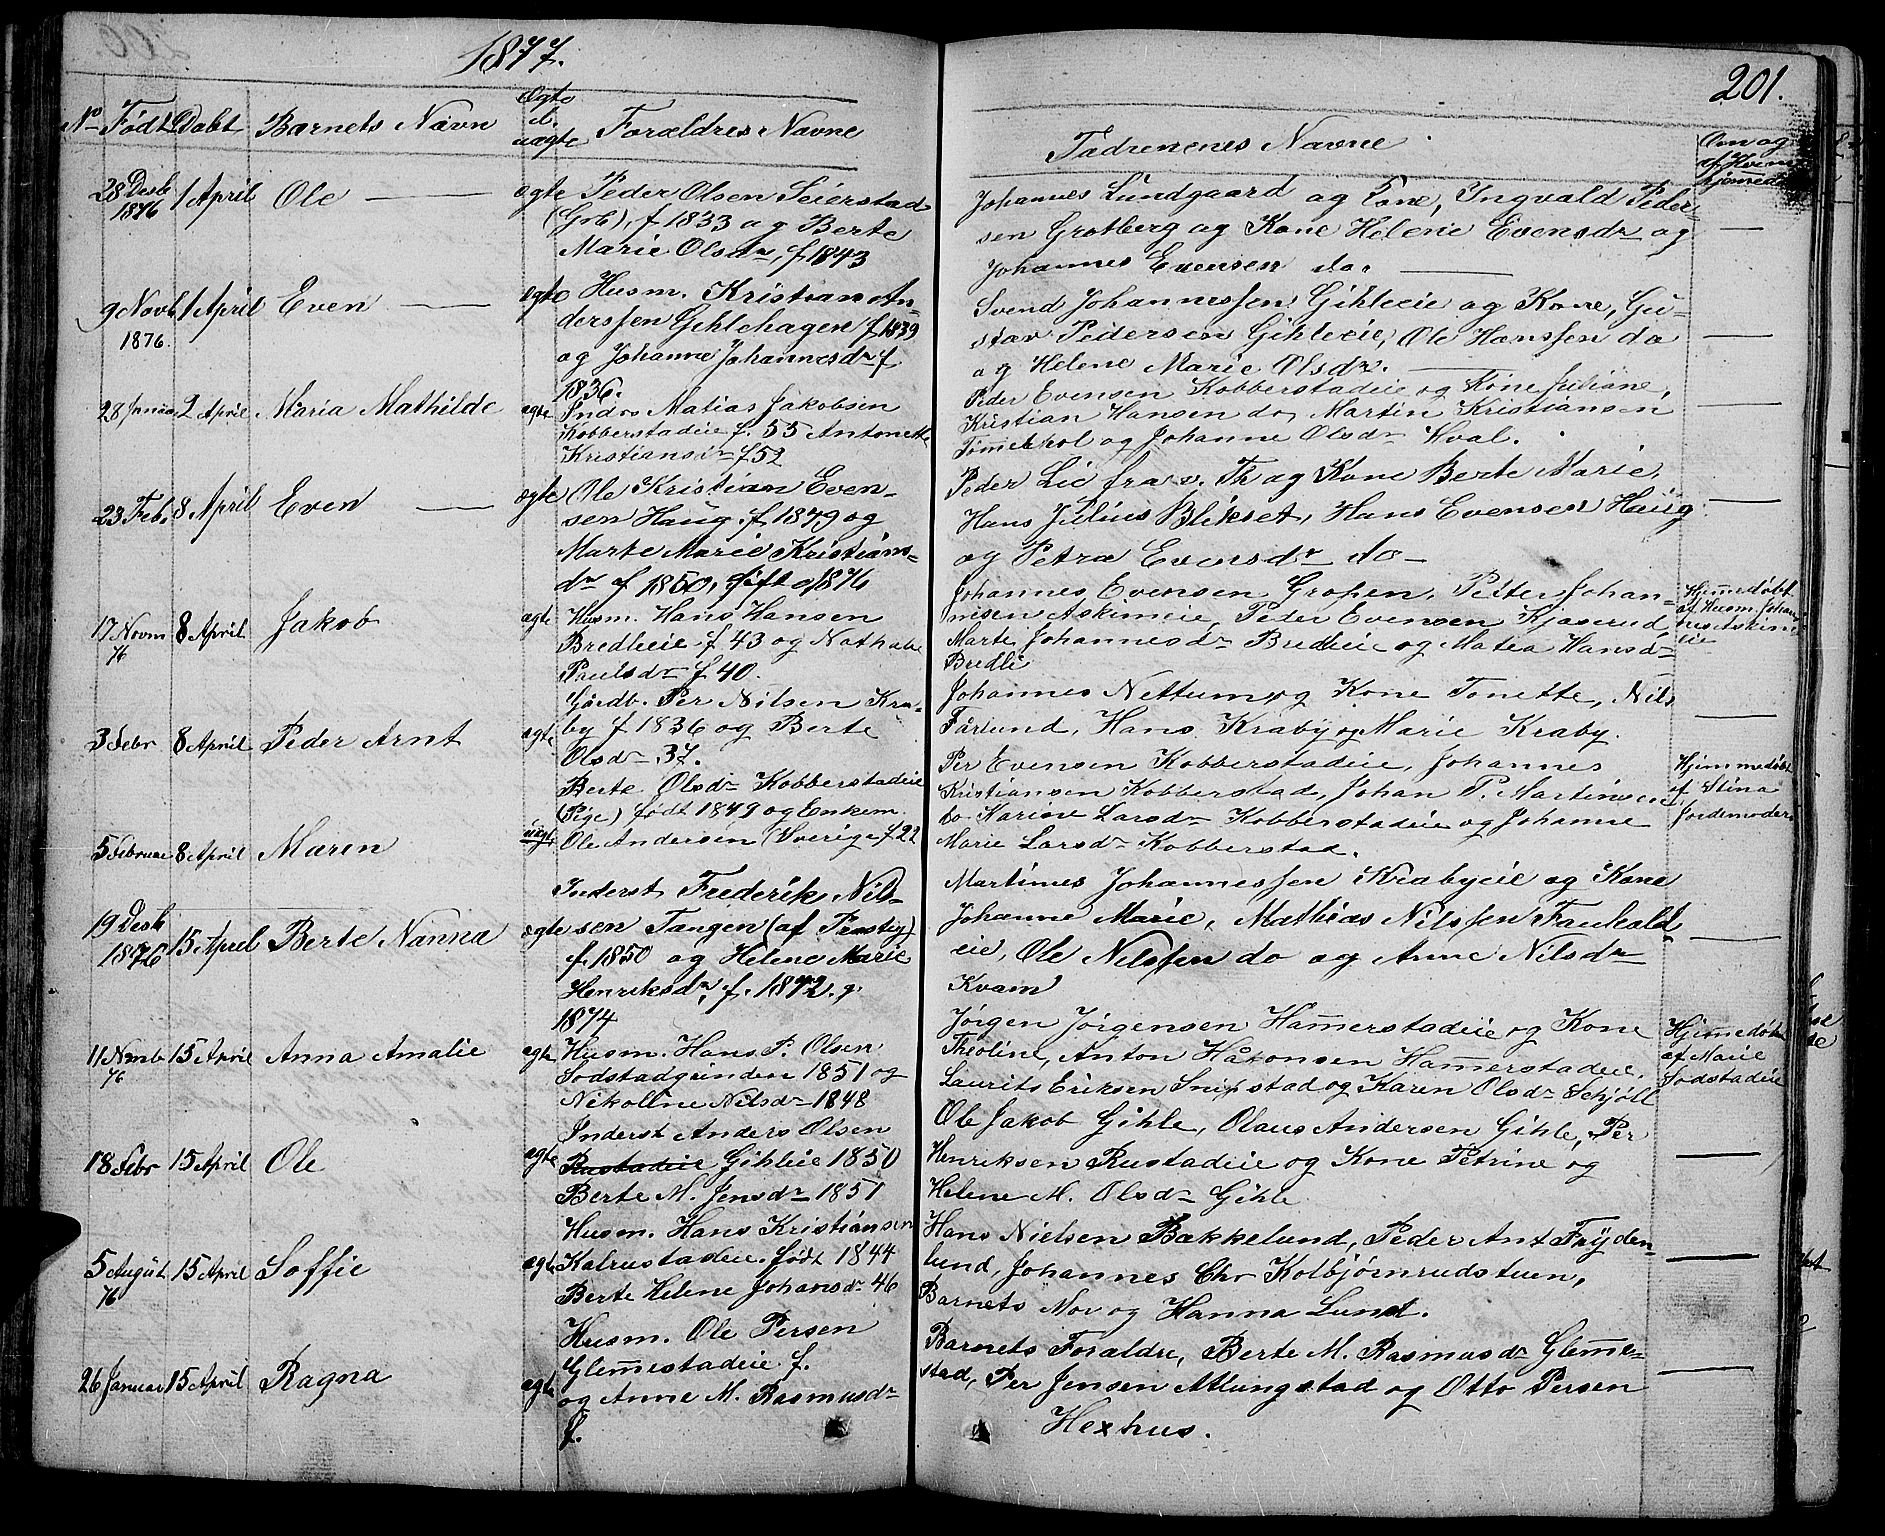 1877.
201.
No Født Døbt Barnets Navn Ægte el. uægte Forældres Navne
Fadrenenes Navne
Om og af Hvem hjemmed
28 Desb 1876 1 April Ole ægte Peder Olsen Seierstad
(Grb), f 1833 og Berte
Marie Olsdr, f 1843
Johannes Lundgaard og Kone, Ingvald Peder-
sen Grotberg og Kone Helene Evensdr og
Johannes Evensen do.
9 Novb 1876. 1 April Even ægte Husm. Kristian An-
derssen Gihlehagen f 1839
og Johanne Johannesdr f
1836.
Svend Johannessen Gihleeie og Kone, Gu-
stav Pedersen Gihleeie, Ole Hanssen do
og Helene Marie Olsdr.
28 Janua 2 April Maria Mathilde ægte Inders Matias Jakobsen
Kobberstadeie f. 55 Antonette
Kristiansdr f 52
Peder Evensen Kobberstadeie og Kone Juliane,
Kristian Hansen do, Martin Kristiansen
og Johanne Olsdr Hval.
23 Feb. 8 April Even ægte Ole Kristian Even-
sen Haug f 1849 og
Marte Marie Kristians-
dr f 1850, gift 1876
Peder Lie fra v. Th og Kone Berte Marie,
Hans Julius Blikset, Hans Evensen Haug
og Petra Evensdr do
17 Novm 76 8 April Jakob ægte Husm. Hans Hansen
Bredlieie f 43 og Nathalie
Paulsdr f 40.
Johannes Evensen Grofsen, Petter Johan-
nesen Askimeie, Peder Evensen Kjøserud,
Marte Johannesdr Bredlieie og Matea Hansdr
Bredli
Hjemmedøbt
af Husm. Johan
nes Askim
eie
3 Febr 8 April Peder Arnt ægte Gårdb. Per Nilsen Kra-
by f 1836 og Berte
Olsdr 37.
Johannes Nettum og Kone Tonette, Nils
Fårlund, Hans Kraby og Marie Kraby.
5 Februar 8 April Maren uægte Berte Olsdr Kobberstadeie
(Pige) født 1849 og Enkem.
Ole Andersen (Sverige f 22
Per Evensen Kobberstadeie, Johannes
Kristiansen Kobberstad, Johan P. Martinseie
do Karine Larsdr Kobberstadeie og Johanne
Marie Larsdr Kobberstad.
Hjemmedøbt
af Stina
Jordemoder
19 Desb 1876 15 April Berte Nanna ægte Inderst Frederik Nil-
sen Tangen (af Præsteg)
f 1850 og Helene Marie
Henriksdr, f. 1842. g.
1874
Martines Johannessen Krabyeie og Kone
Johanne Marie, Mathias Nilssen Faukald-
eie, Ole Nilssen do og Anne Nilsdr
Kvam
11 Novmb 76 15 April Anna Amalie ægte Husm. Hans P. Olsen
Sodstadgrinden 1851 og
Nikoline Nilsdr 1848
Jørgen Jørgensen Hammerstadeie og Kone
Theoline, Anton Håkonsen Hammerstadeie,
Laurits Eriksen Snipstad og Karen Olsdr Schjøll
Hjemmedøbt
af Marie
Sodstadeie
18 Febr 15 April Ole ægte Inderst Anders Olsen
Rustadeie Gihleie 1850
Berte M. Jensdr 1851
Ole Jakob Gihle, Olaus Andersen Gihle, Per
Henriksen Rustadeie og Kone Petrine og
Helene M. Olsdr Gihle
5 August 76 15 April Soffie ægte Husm. Hans Kristiansen
Kalrustadeie født 1844
Berte Helene Johansdr 46
Hans Nielsen Bækkelund, Peder Ant Frøyden-
lund, Johannes Chr Kolbjørnrudstuen,
Barnets Mor og Hanna Lund.
26 Januar 15 April Ragna ægte Husm. Ole Persen
Glemmestadeie f.
og Anne M. Rasmusdr
f.
Barnets Forældre, Berte M. Rasmusdr Glemme-
stad, Per Jensen Alungstad og Otto Persen
Hexhus.